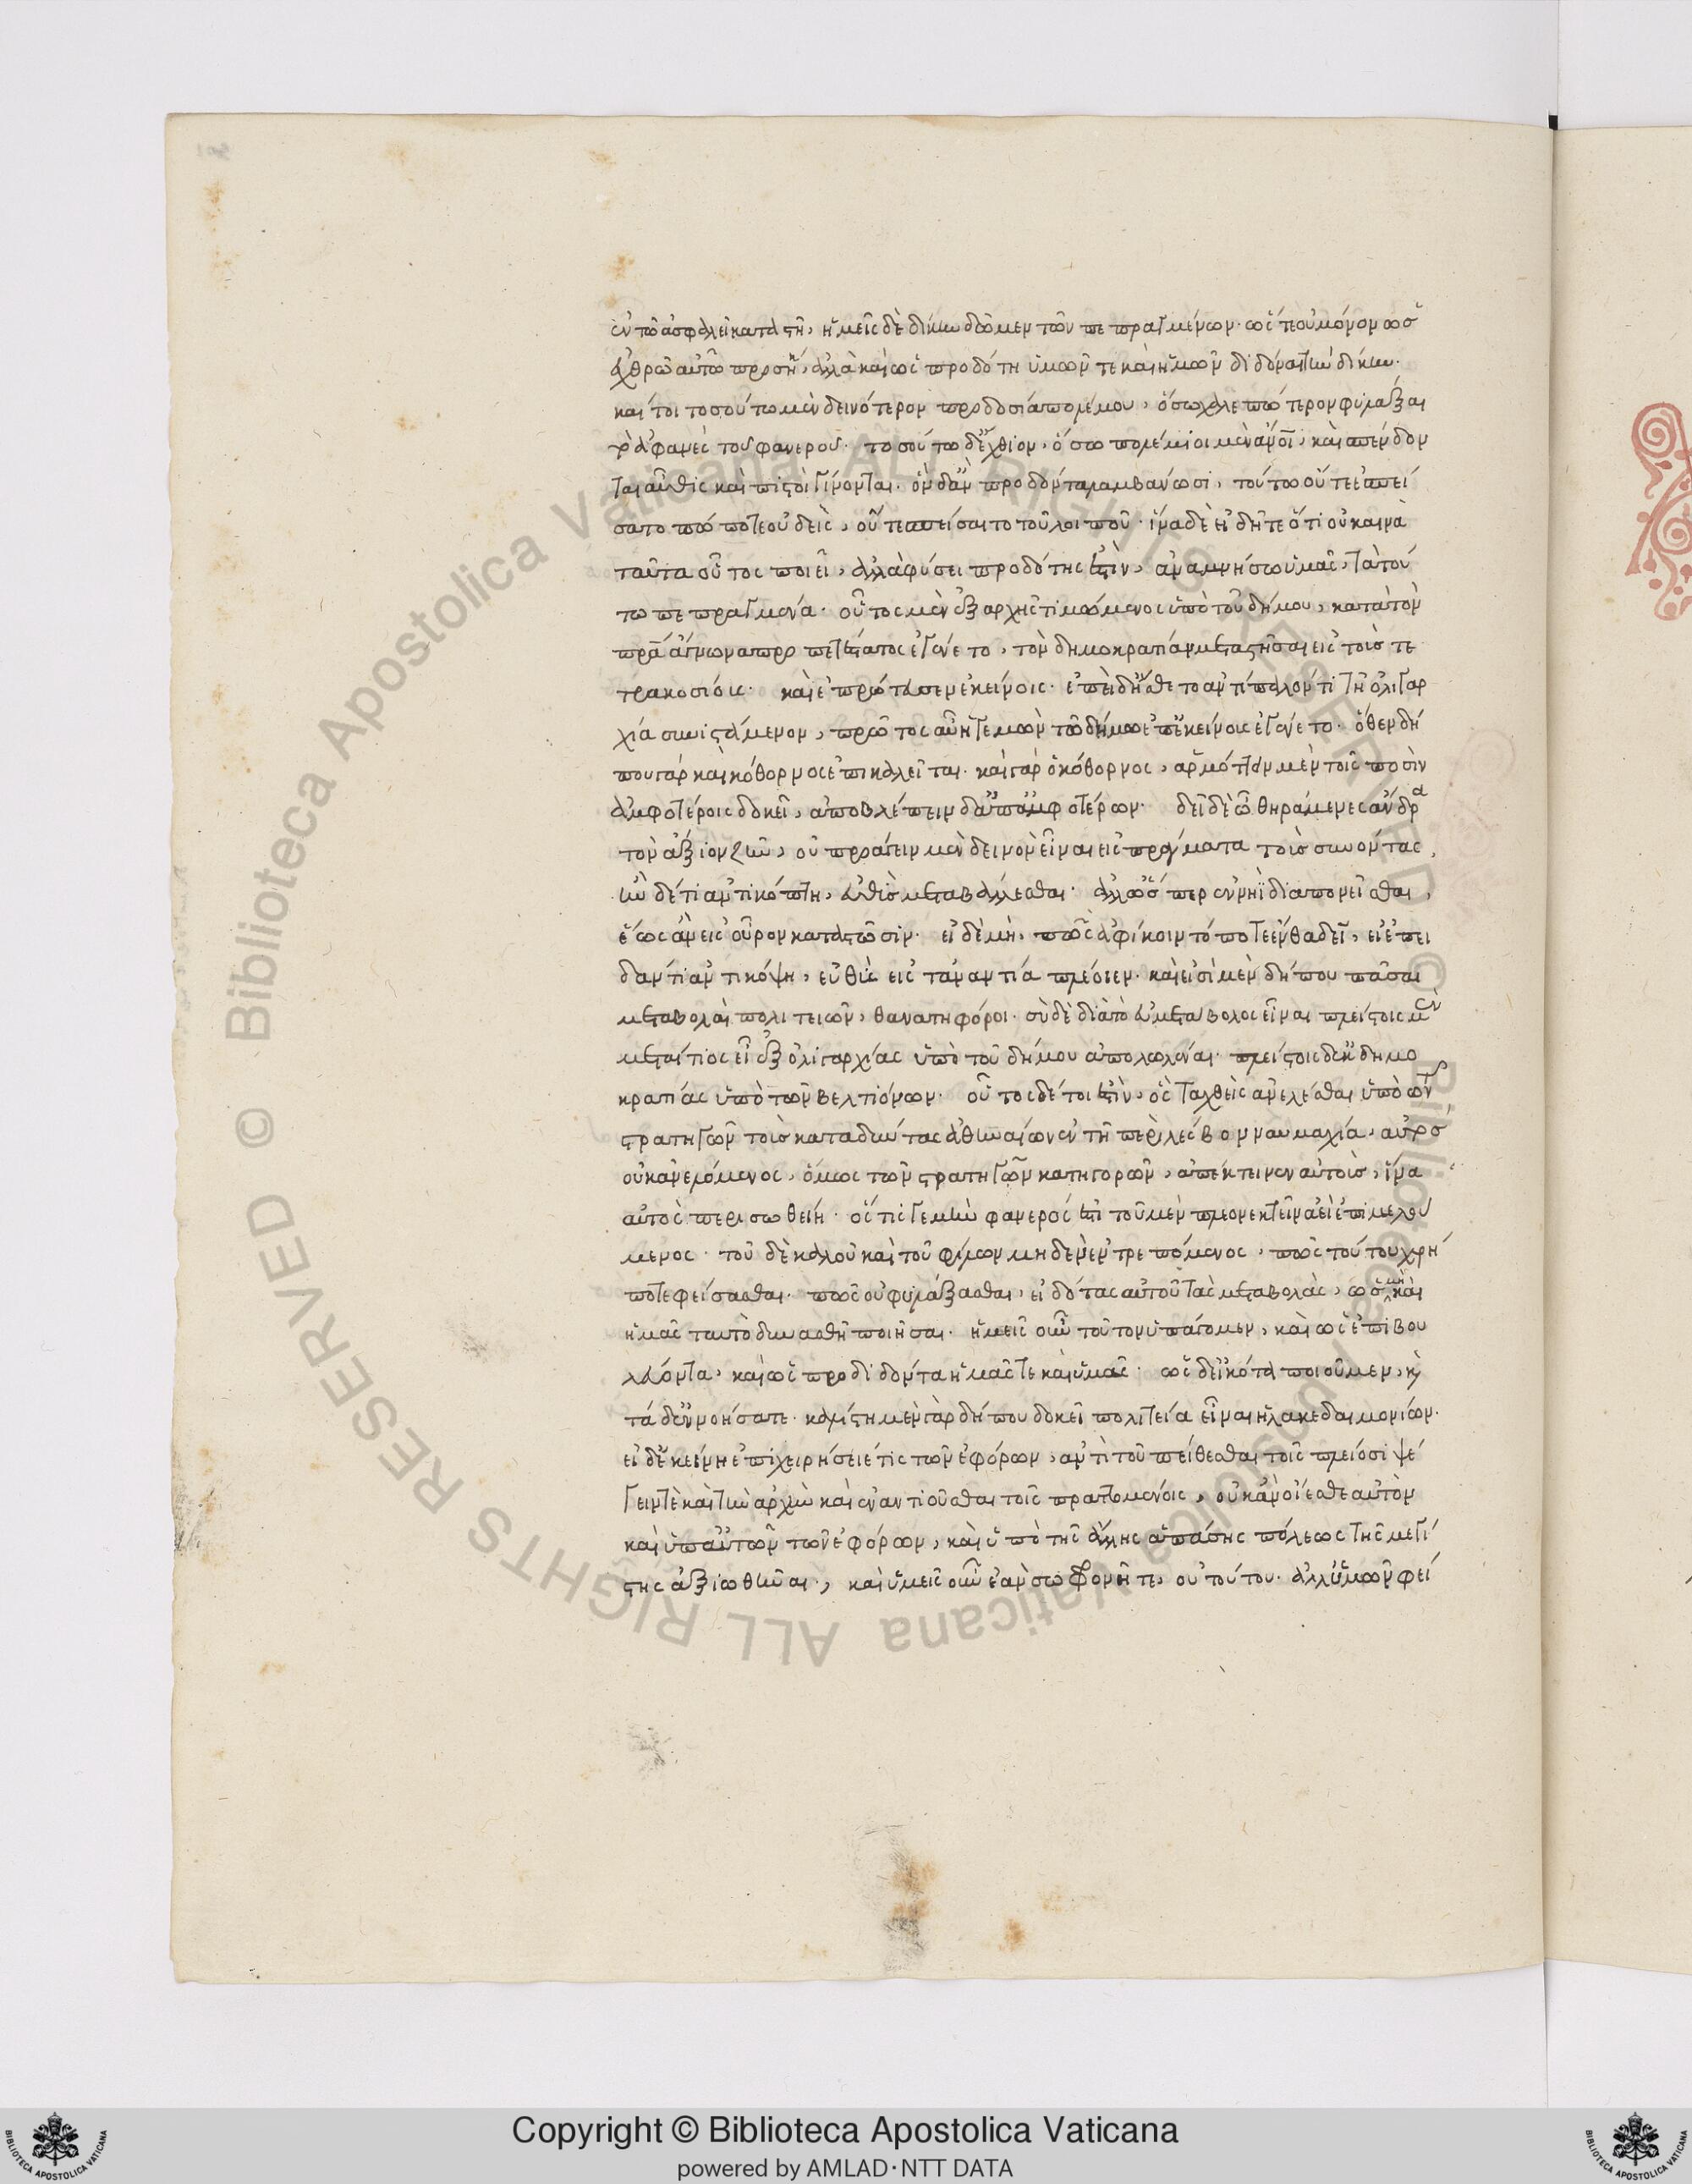 ἐν τῶ ἀσφαλεῖ καταστῆ, ἡμεῖς δὲ δίκην δῶμεν τῶν πεπραγμένων. ὥστε οὐ μόνον ὡς
ἐχθρῶ αὐτῶ προσῆ, ἀλλὰ καὶ ὡς προδότη ὑμῶν τε καὶ ἡμῶν διδόναι τὴν δίκην.
καίτοι τοσούτω μὲν δεινότερον προδοσία πολέμου, ὅσω χαλεπώτερον φυλάξαι
τὸ ἀφανὲς τοῦ φανεροῦ. τοσούτω δ' ἔχθιον, ὅσω πολεμίοι μὲν ἀνοι, καὶ σπένδον
ται αὖθις καὶ πιστοὶ γίνονται. ὃν δ' ἂν προδόντα λαμβάνωσι, τούτω οὔτε ἐσπεί
σατο πώποτε οὐδεὶς, οὔτε σπείσαιτο τοῦ λοιποῦ. ἵνα δὲ εἰδῆτε ὅτι οὐ καινὰ
ταῦτα οὗτος ποιεῖ, ἀλλὰ φύσει προδότης ἐστὶν, ἀναμνήσω ὑμᾶς, τὰ τού
τω πεπραγμένα. οὗτος μὲν ἐξ αρχῆς τιμώμενος ὑπὸ τοῦ δήμου, κατὰ τὸν
πρα ἅγνωνα προπετέστατος ἐγένετο, τὸν δημοκρατίαν μεταστῆσαι εἰς τοὺς τε
τρακοσίους. καὶ ἐπρώτευεν ἐκείνοις. ἐπεὶ δὴ ἤσθετο ἀντίπαλόν τι τῆ ὀλιγαρ
χία συνιστάμενον, πρῶτος αὖ ἡγεμὼν τῶ δήμω ἐπ' ἐκείνους ἐγένετο. ὅθεν δή
που γὰρ καὶ κόθορνος ἐπικαλεῖται. καὶ γὰρ ὁ κόθορνος, ἁρμόττειν μὲν τοῖς ποσὶν
ἀμφοτέροις δοκεῖ, ἀποβλέπειν δ' ἀπ' ἀμφοτέρων. δεῖ δὲ ὦ θηράμενες ἄνδρα
τὸν ἄξιον ζῆν, οὐ προάγειν μὲν δεινὸν εἶναι εἰς πράγματα τοὺς συνόντας,
ἢν δέ τι ἀντικόπτη, εὐθὺς μεταβάλλεσθαι. ἀλλ' ὥσπερ ἐν νηῒ διαπονεῖσθαι,
ἕως ἂν εἰς οὖρον καταστῶσιν. εἰ δὲ μὴ, πῶς ἀφίκοιντό ποτε ἔνθα δεῖ, εἰ ἐπει
δάν τι ἀντικόψη, εὐθὺς εἰς τἀναντία πλέοιεν. καὶ εἰσὶ μὲν δήπου πᾶσαι
μεταβολαὶ πολιτειῶν, θανατηφόροι. σὺ δὲ διὰ τὸ εὐμετάβολος εἶναι πλείστοις μὲν
μεταίτιος εἶ ἐξ ὀλιγαρχίας ὑπὸ τοῦ δήμου ἀπολωλέναι. πλείστοις δ' ἐκ δημο
κρατίας ὑπὸ τῶν βελτιόνων. οὗτος δέ τοι ἐστὶν, ὃς ταχθεὶς ἀνελέσθαι ὑπὸ τῶν
στρατηγῶν τοὺς καταδύντας ἀθηναίων ἐν τῆ περὶ λέσβον ναυμαχία, αὐτὸς
οὐκ ἀνελόμενος, ὅμως τῶν στρατηγῶν κατηγορῶν, ἀπέκτεινεν αὐτοὺς, ἵνα
αὐτὸς περισωθείη. ὅστις γε μὴν φανερός ἐστι τοῦ μὲν πλεονεκτεῖν ἀεὶ ἐπιμελού
μενος. τοῦ δὲ καλοῦ καὶ τοῦ φίλων μηδὲν ἐντρεπόμενος, πῶς τούτου χρή
ποτε φείσασθαι. πῶς οὐ φυλάξασθαι, εἰδότας αὐτοῦ τὰς μεταβολὰς, ὡς μὴ καὶ
ἡμᾶς ταυτὸ δυνασθῆ ποιῆσαι. ἡμεῖς οὖν τοῦτον ὑπάγομεν, καὶ ὡς ἐπιβου
λεύοντα, καὶ ὡς προδιδόντα ἡμᾶς τε καὶ ὑμᾶς. ὡς δ' εἰκότα ποιοῦμεν, καὶ
τάδ' ἐννοήσατε. καλίστη μὲν γὰρ δήπου δοκεῖ πολιτεία εἶναι ἡ λακεδαιμονίων.
εἰ δ' ἐκείνη ἐπιχειρήσειέ τις τῶν ἐφόρων, ἀντὶ τοῦ πείθεσθαι τοῖς πλείοσι ψέ
γειν τὲ καὶ τὴν ἀρχὴν καὶ ἐναντιοῦσθαι τοῖς πραττομένοις, οὐκ ἂν οἴεσθε αὐτὸν
καὶ ὑπ' αὐτῶν τῶν ἐφόρων, καὶ ὑπὸ τῆς ἄλλης ἁπάσης πόλεως τῆς μεγί
στης ἀξιωθῆναι., καὶ ὑμεῖς οὖν ἐὰν σωφρονῆτε, οὐ τούτου. ἀλλ' ὑμῶν φεί